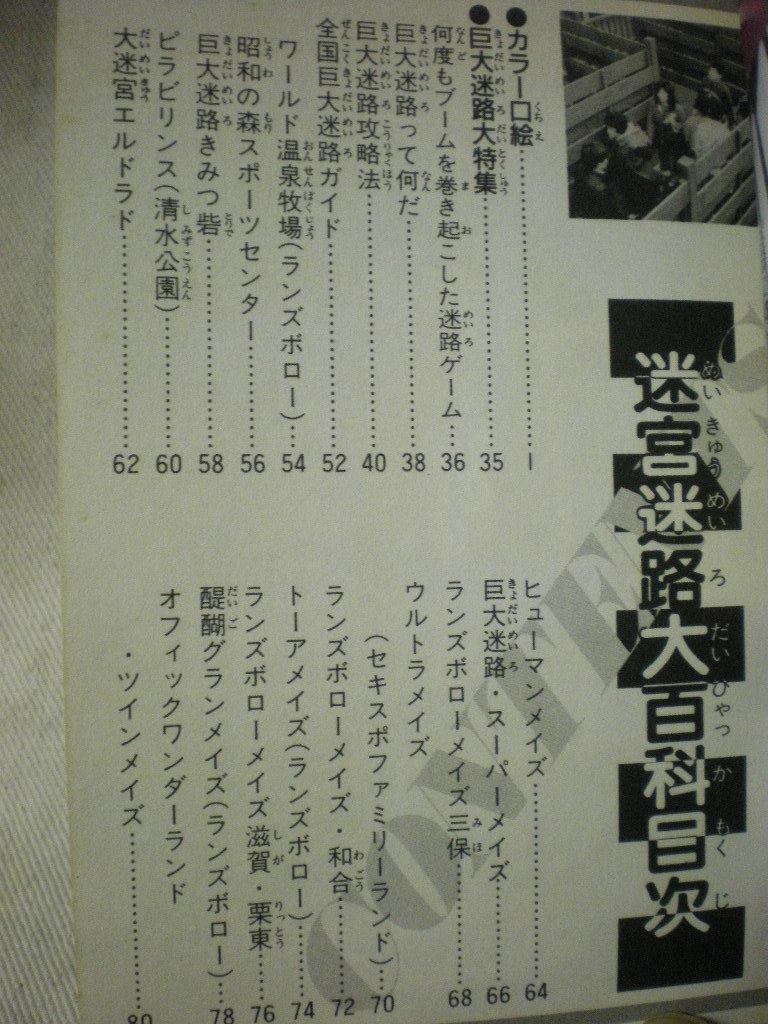 迷宮迷路大百科目次
CONTENTS
●カラー口絵……1
●巨大迷路大特集……35
何度もブームを巻き起こした迷路ゲーム…36
巨大迷路って何だ……38
巨大迷路攻略法……40
全国巨大迷路ガイド……52
ワールド温泉牧場(ランズボロー)…54
昭和の森スポーツセンター……56
巨大迷路きみつ砦……58
ピラビリンス(清水公園)……60
大迷宮エルドラド……62
ヒューマンメイズ……64
巨大迷路・スーパーメイズ……66
ランズボローメイズ三保……68
ウルトラメイズ
(セキスポファミリーランド)…70
ランズボローメイズ・和合……72
トーアメイズ(ランズボロー)……74
ランズボローメイズ滋賀・栗東……76
醍醐グランメイズ(ランズボロー)…78
オフィックワンダーランド
・ツインメイズ……80